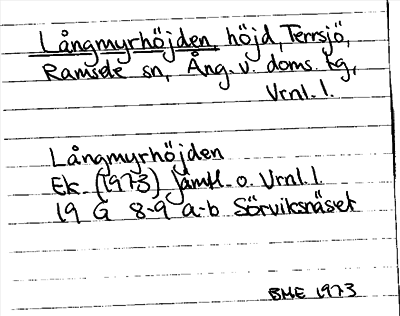 Långmyrhöjden, höjd, Terrsjö,
Ramsele sn, Ång. v. doms. tg,
Vrnl. l.
Långmyrhöjden
Ek. (1973) Jämtl. o. Vrnl. l.
19 G 8-9 a-b Sörviksnäset
BME 1973